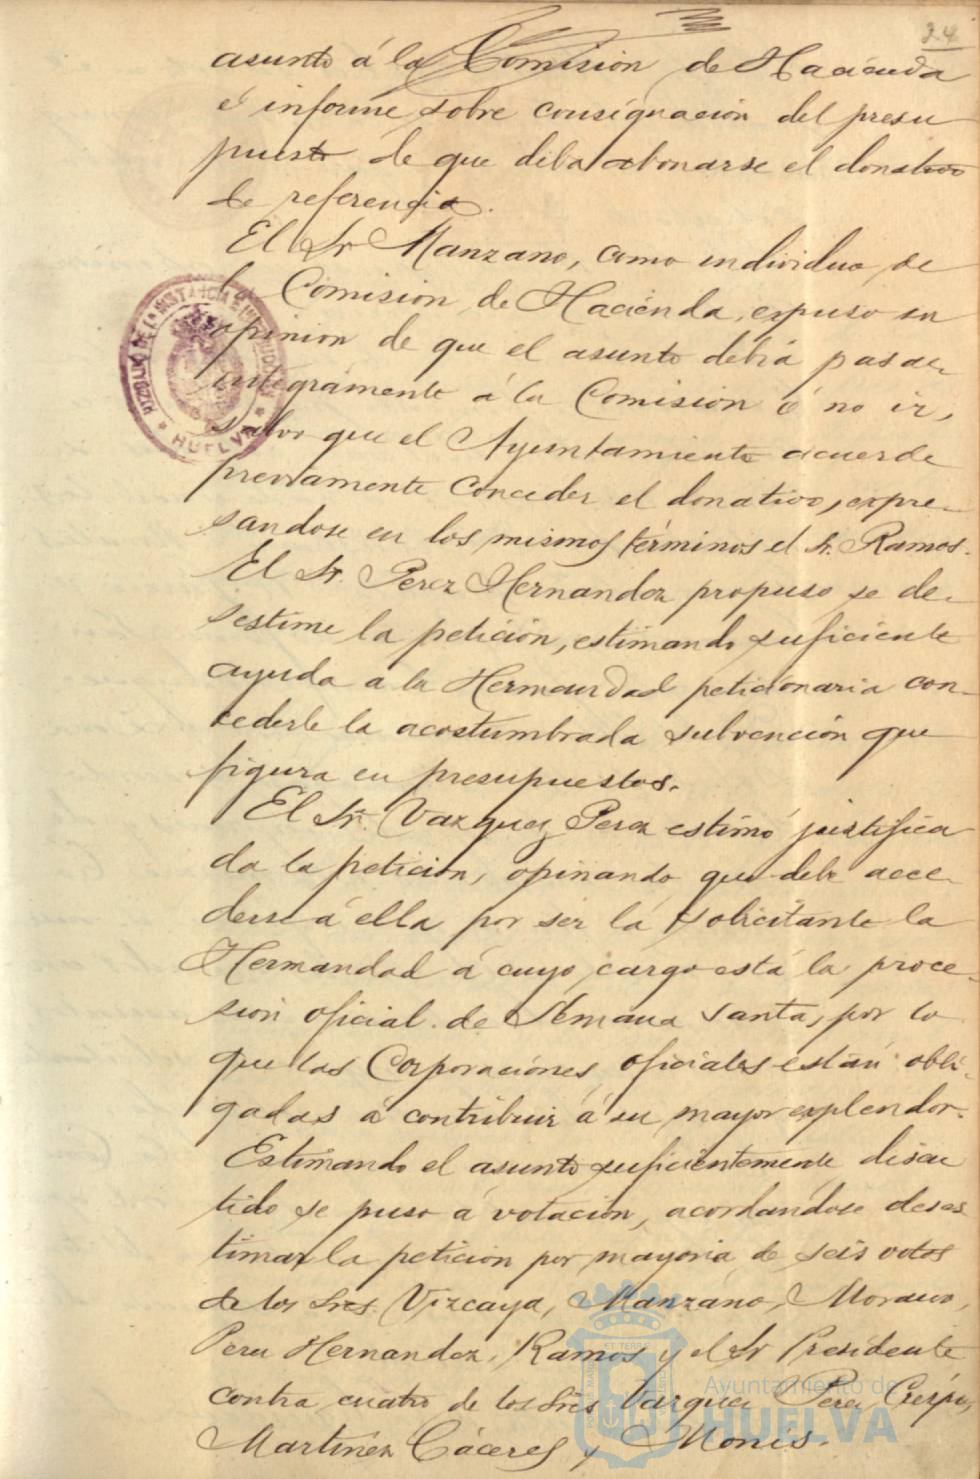 24
asunto á la Comision de Hacienda
é informe sobre consignación del presu
puesto de que deba abonarse el donativo
de referencia.
El Sr Manzano, como individuo de
la Comision de Hacienda, expuso su
opinion de que el asunto debia pasar
integramente á la Comision ó no ir,
salvo que el Ayuntamiento acuerde
previamente conceder el donativo, expre-
sandose en los mismos términos el Sr. Ramos.
El Sr. Perez Hernandez propuso se de-
sestime la petición, estimando suficiente
ayuda a la Hermandad peticionaria con-
cederle la acostumbrada subvención que
figura en presupuestos.
El Sr. Vazquez Perez estimó justifica
da la petición, opinando que debe acce-
derse á ella por ser la solicitante la
Hermandad á cuyo cargo está la proce-
sion oficial de Semana Santa, por lo
que las Corporaciones oficiales están obli-
gadas á contribuir á su mayor explendor.
Estimando el asunto suficientemente discu
tido se puso á votación, acordándose deses
timar la petición por mayoria de seis votos
de los Sres. Vizcaya, Manzano, Moreno,
Perez Hernandez, Ramos y el Sr Presidente
contra cuatro de los Sres Vazquez Perez, Crespo,
Martinez Cáceres y Monis.
HUELVA
Ayuntamiento de
HUELVA